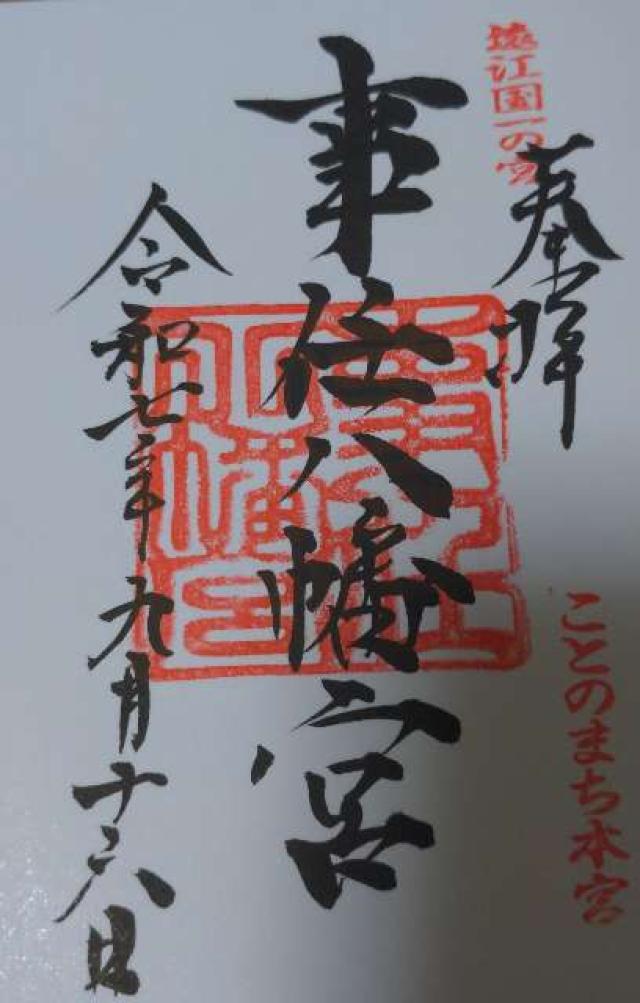 遠江国一の宮
奉拝
ことのまち本宮
事任八幡宮
事任
八幡宮
令和七年九月十六日